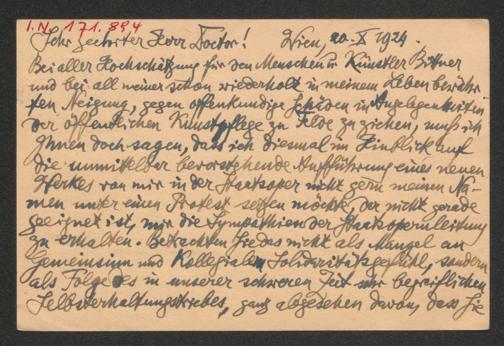 I.N. 171.894
Sehr geehrter Herr Doctor! Wien, 20. X 1924.
Bei aller Hochschätzung für den Menschen u. Künstler Bittner
und bei all meiner schon wiederholt in meinem Leben bewähr-
ten Neigung, gegen offenkundige Schäden in Angelegenheiten
der öffentlichen Kunstpflege zu Felde zu ziehen, muß ich
Ihnen doch sagen, dass ich diesmal im Hinblick auf
die unmittelbar bevorstehende Aufführung eines neuen
Werkes von mir in der Staatsoper nicht gern meinen Na-
men unter einen Protest setzen möchte, der nicht gerade
geeignet ist, mir die Sympathien der Staatsopernleitung
zu erhalten. Betrachten Sie das nicht als Mangel an
Gemeinsinn und Kollegialem Solidaritätsgefühl, sondern
als Folge des in unserer schweren Zeit sehr begreiflichen
Selbsterhaltungstriebes, ganz abgesehen davon, dass Sie